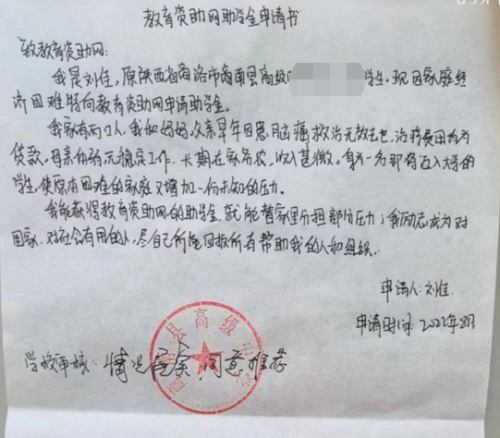 教育资助网助学金申请书
致教育资助网:
我是刘佳,原陕西省商洛市商南县高级 学生,现因家庭经
济困难特向教育资助网申请助学金。
我家有两口人,我和妈妈,父亲早年因患脑瘤救治无效去世,治疗费用均为
贷款,母亲伤病无稳定工作,长期在家务农,收入甚微。身为一名即将迈入大学的
学生,使原有困难的家庭又增加一份未知的压力。
我能获得教育资助网的助学金,就能替家里分担部分压力;我励志成为对
国家、对社会有用的人,尽自己所能回报所有帮助我的人和组织。
申请人:刘佳
申请时间:2022年8月
县高级中
学校审核:情况属实 同意推荐